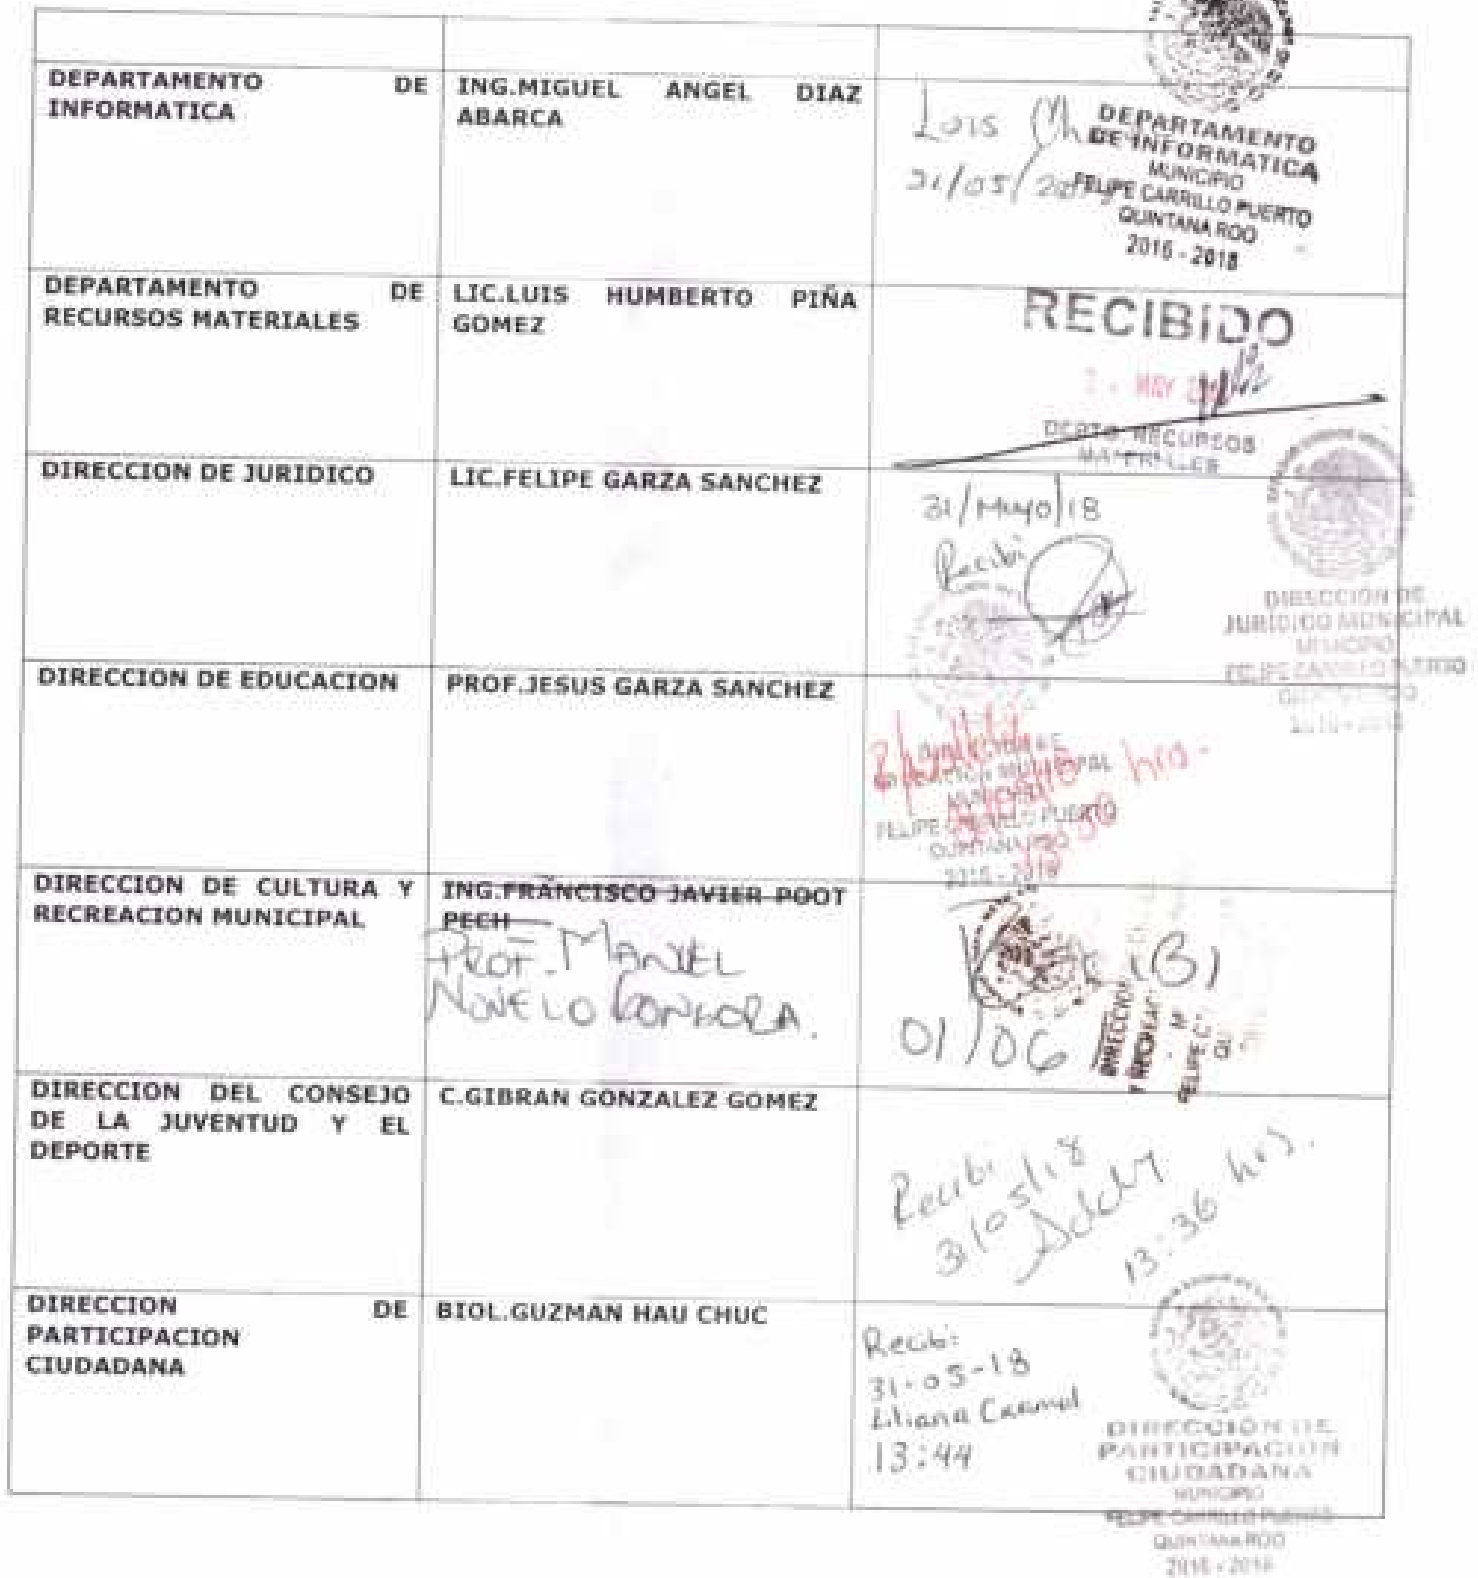 DEPARTAMENTO DE
INFORMATICA
ING.MIGUEL ANGEL DIAZ
ABARCA
Luis Ch
31/05/
DEPARTAMENTO
DE INFORMATICA
MUNICIPIO
FELIPE CARRILLO PUERTO
QUINTANA ROO
2016 - 2018
DEPARTAMENTO DE
RECURSOS MATERIALES
LIC.LUIS HUMBERTO PIÑA
GOMEZ
RECIBIDO
MAY
DEPTO. RECURSOS
MATERIALES
DIRECCION DE JURIDICO
LIC.FELIPE GARZA SANCHEZ
31/Mayo/18
Recibi
DIRECCIÓN DE
JURIDICO MUNICIPAL
MUNICIPIO
FELIPE CARRILLO PUERTO
QUINTANA ROO
2016 - 2018
DIRECCION DE EDUCACION
PROF.JESUS GARZA SANCHEZ
hrs.
MUNICIPAL
MUNICIPIO
FELIPE CARRILLO PUERTO
QUINTANA ROO
2016 - 2018
DIRECCION DE CULTURA Y
RECREACION MUNICIPAL
ING.FRANCISCO JAVIER POOT
PECH
PROF. MANUEL
NOVELO GONGORA.
01/06
DIRECCION
Y RECREAC
M
FELIPE C
QU
DIRECCION DEL CONSEJO
DE LA JUVENTUD Y EL
DEPORTE
C.GIBRAN GONZALEZ GOMEZ
Recibi
31/05/18
13:36 hrs.
DIRECCION DE
PARTICIPACION
CIUDADANA
BIOL.GUZMAN HAU CHUC
Recibi:
31-05-18
Liliana Caamal
13:44
DIRECCIÓN DE
PARTICIPACION
CIUDADANA
MUNICIPIO
FELIPE CARRILLO PUERTO
QUINTANA ROO
2016 - 2018